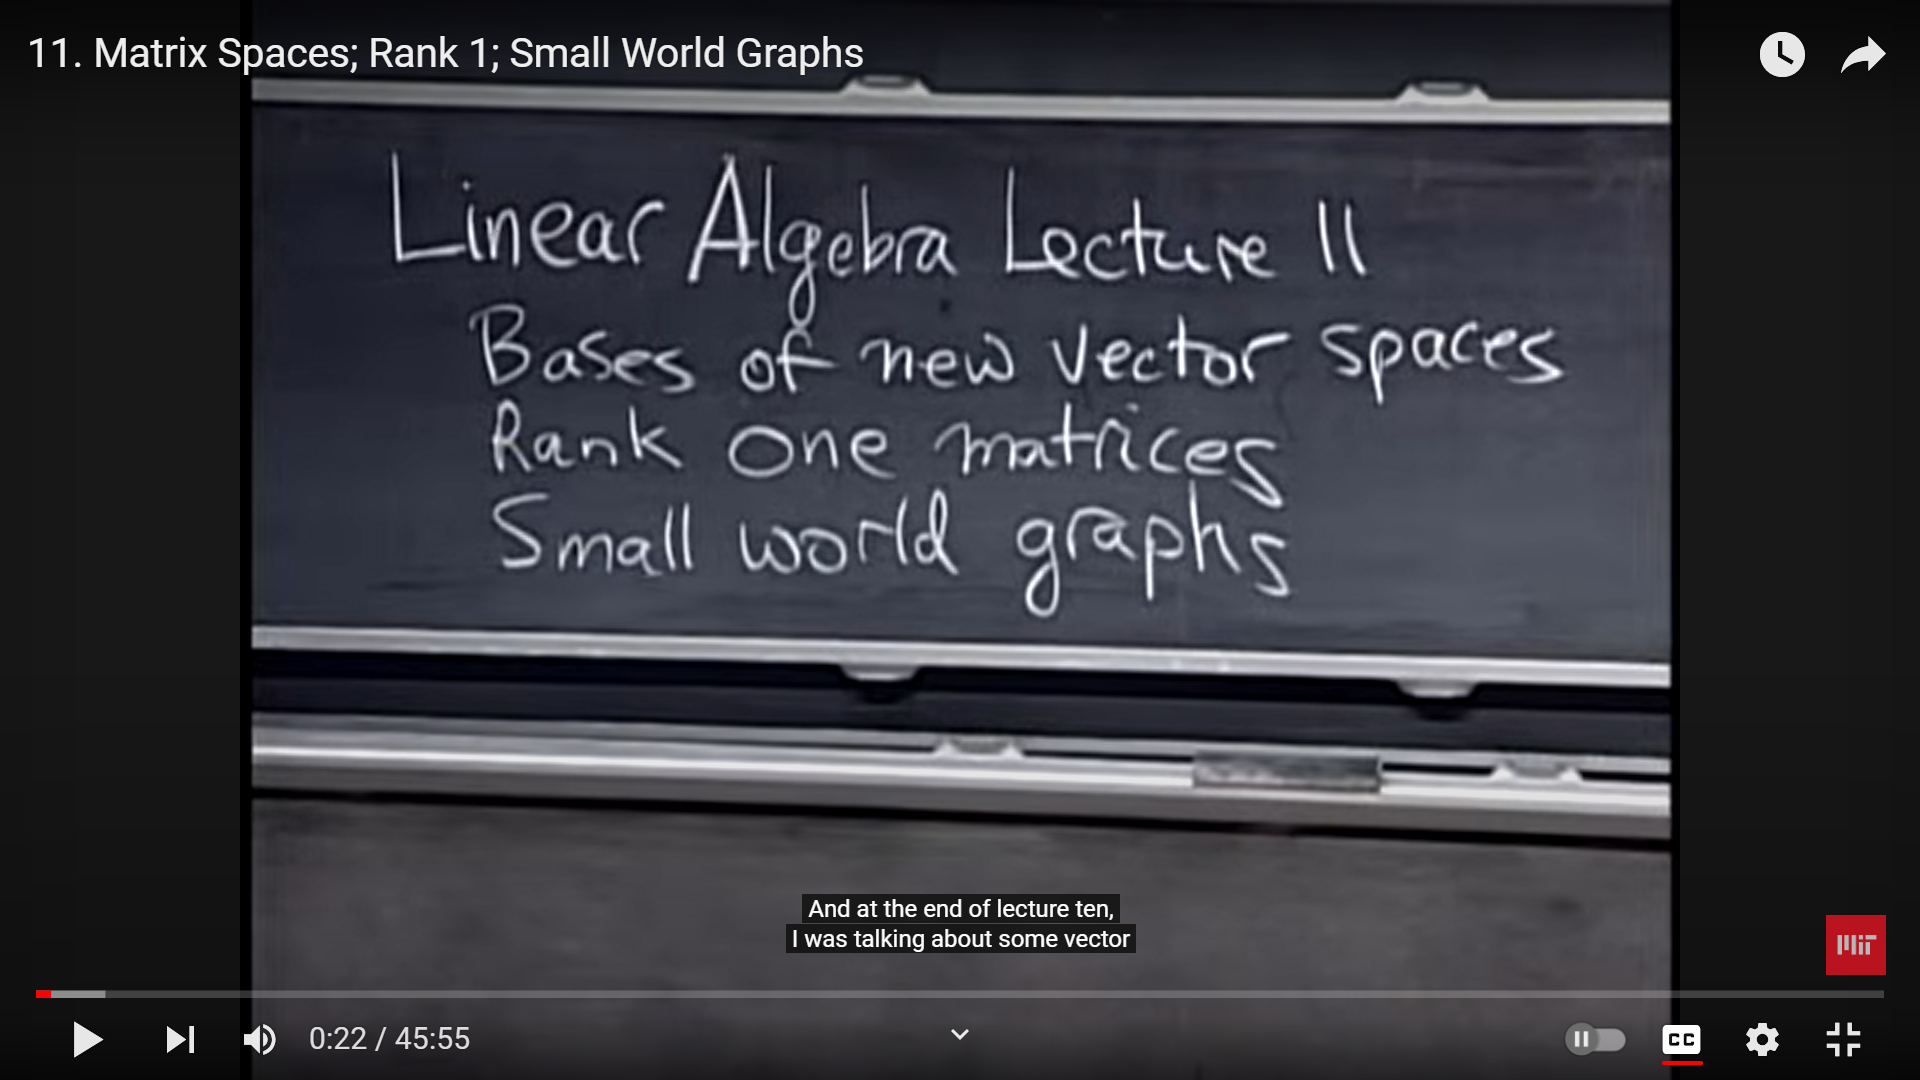 11. Matrix Spaces; Rank 1; Small World Graphs
Linear Algebra Lecture 11
Bases of new vector spaces
Rank one matrices
Small world graphs
And at the end of lecture ten,
I was talking about some vector
MIT
0:22 / 45:55
CC